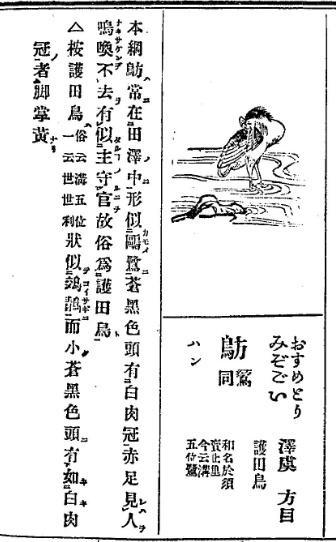 おすめとり
みぞごい
澤虞 方目
護田鳥
鳭
鴽同
ハン
和名於須
賣止里
今云溝
五位鷺
本綱鳭常在田澤中形似鷗鷺蒼黑色頭有白肉冠赤足見人
鳴喚不去有似主守官故俗爲護田鳥
△按護田鳥俗云溝五位一云世世利狀似鵁鶄而小蒼黑色頭有如白肉
冠者脚掌黃